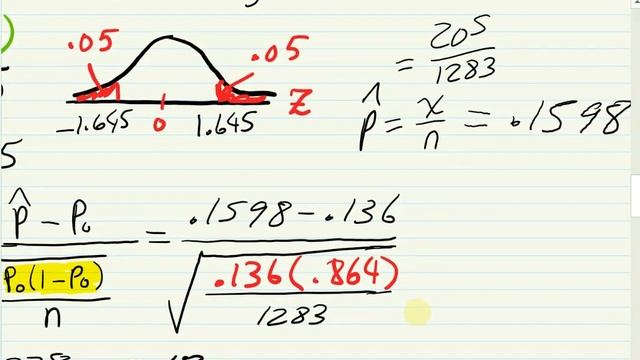 .05 .05
-1.645 0 1.645 Z
= 205/1283
p̂ = x/n = .1598
p̂ - P₀ / √(P₀(1-P₀)/n) = .1598 - .136 / √(.136(.864)/1283)